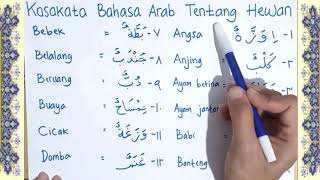 Kosakata Bahasa Arab Tentang Hewan
Bebek = بَطَّةٌ -٧ Angsa = إِوَزَّةٌ -١
Belalang = جُنْدَبٌ -٨ Anjing = كَلْبٌ -٢
Biruang = دُبٌّ -٩ Ayam betina -٣
Buaya = تِمْسَاحٌ -١٠ Ayam jantan
Cicak = وَزَغَةٌ -١١ Babi
Domba = غَنَمٌ -١٢ Banteng